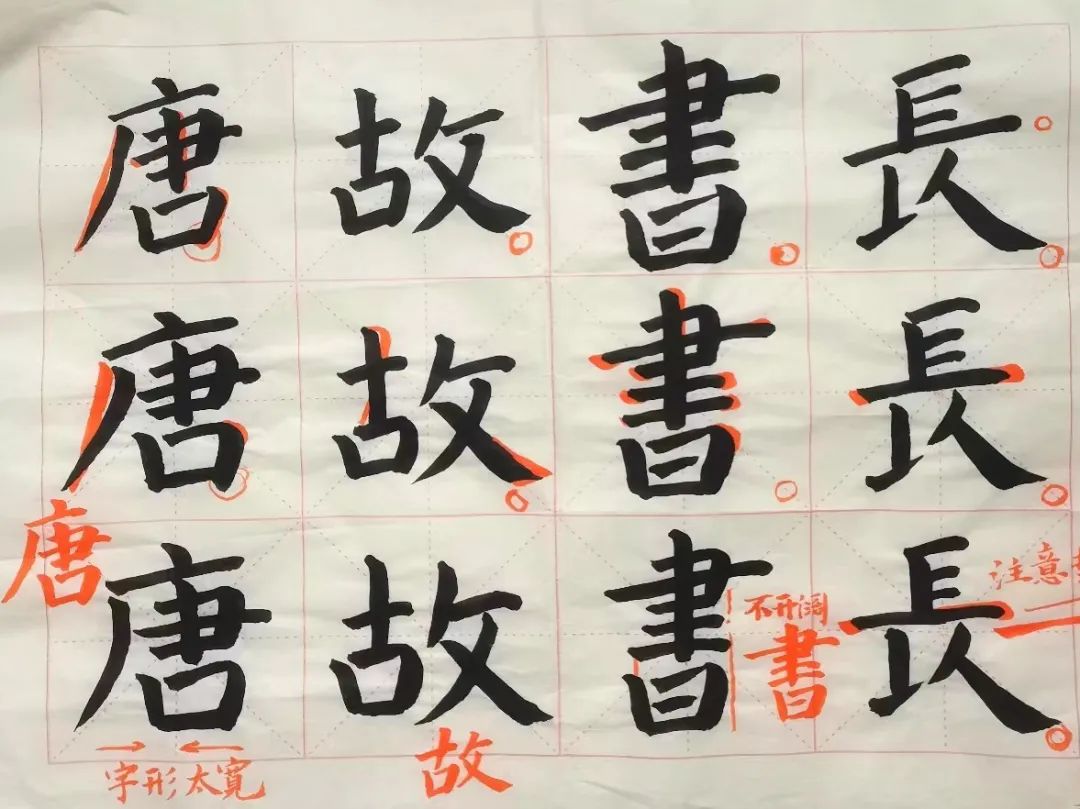 唐故書長
唐故書長
唐
唐故書長
注意
不开阔
書
字形太寬
故